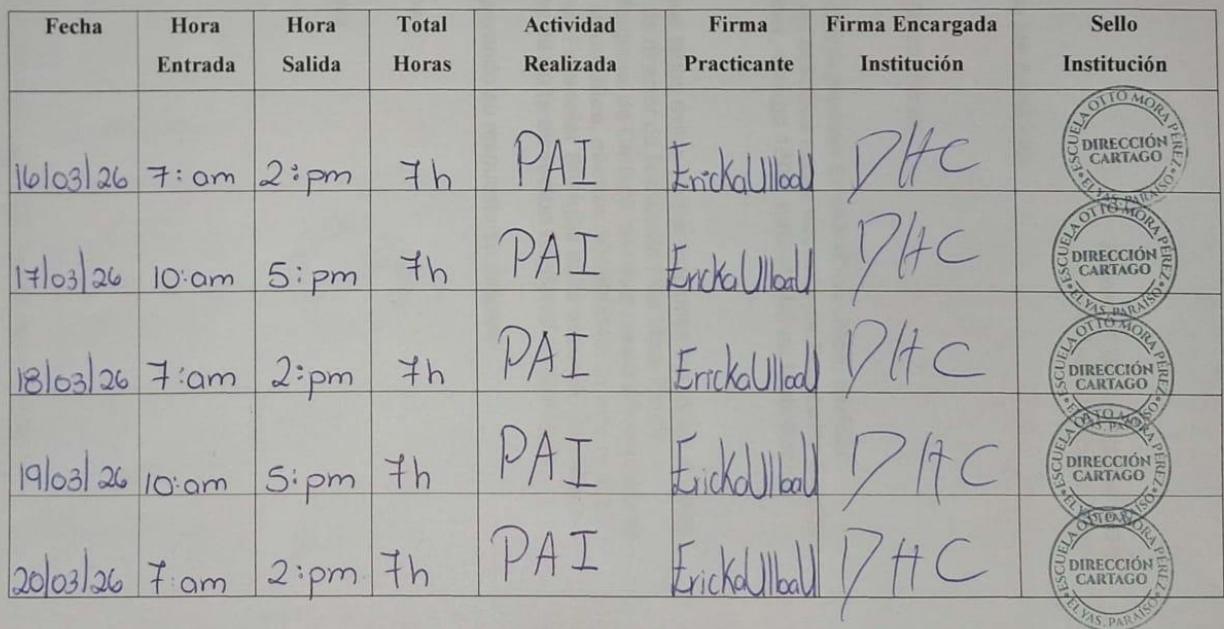 Fecha Hora Entrada Hora Salida Total Horas Actividad Realizada Firma Practicante Firma Encargada Institución Sello Institución
16/03/26 7: am 2: pm 7h PAI ErickaUlloaU DHC ESCUELA OTTO MORA PÉREZ DIRECCIÓN CARTAGO EL YAS, PARAÍSO
17/03/26 10:am 5: pm 7h PAI ErickaUlloaU DHC ESCUELA OTTO MORA PÉREZ DIRECCIÓN CARTAGO EL YAS, PARAÍSO
18/03/26 7:am 2:pm 7h PAI ErickaUlloaU DHC ESCUELA OTTO MORA PÉREZ DIRECCIÓN CARTAGO
19/03/26 10:am 5: pm 7h PAI ErickaUlloaU DHC ESCUELA OTTO MORA PÉREZ DIRECCIÓN CARTAGO
20/03/26 7:am 2:pm 7h PAI ErickaUlloaU DHC ESCUELA OTTO MORA PÉREZ DIRECCIÓN CARTAGO EL YAS, PARAÍSO